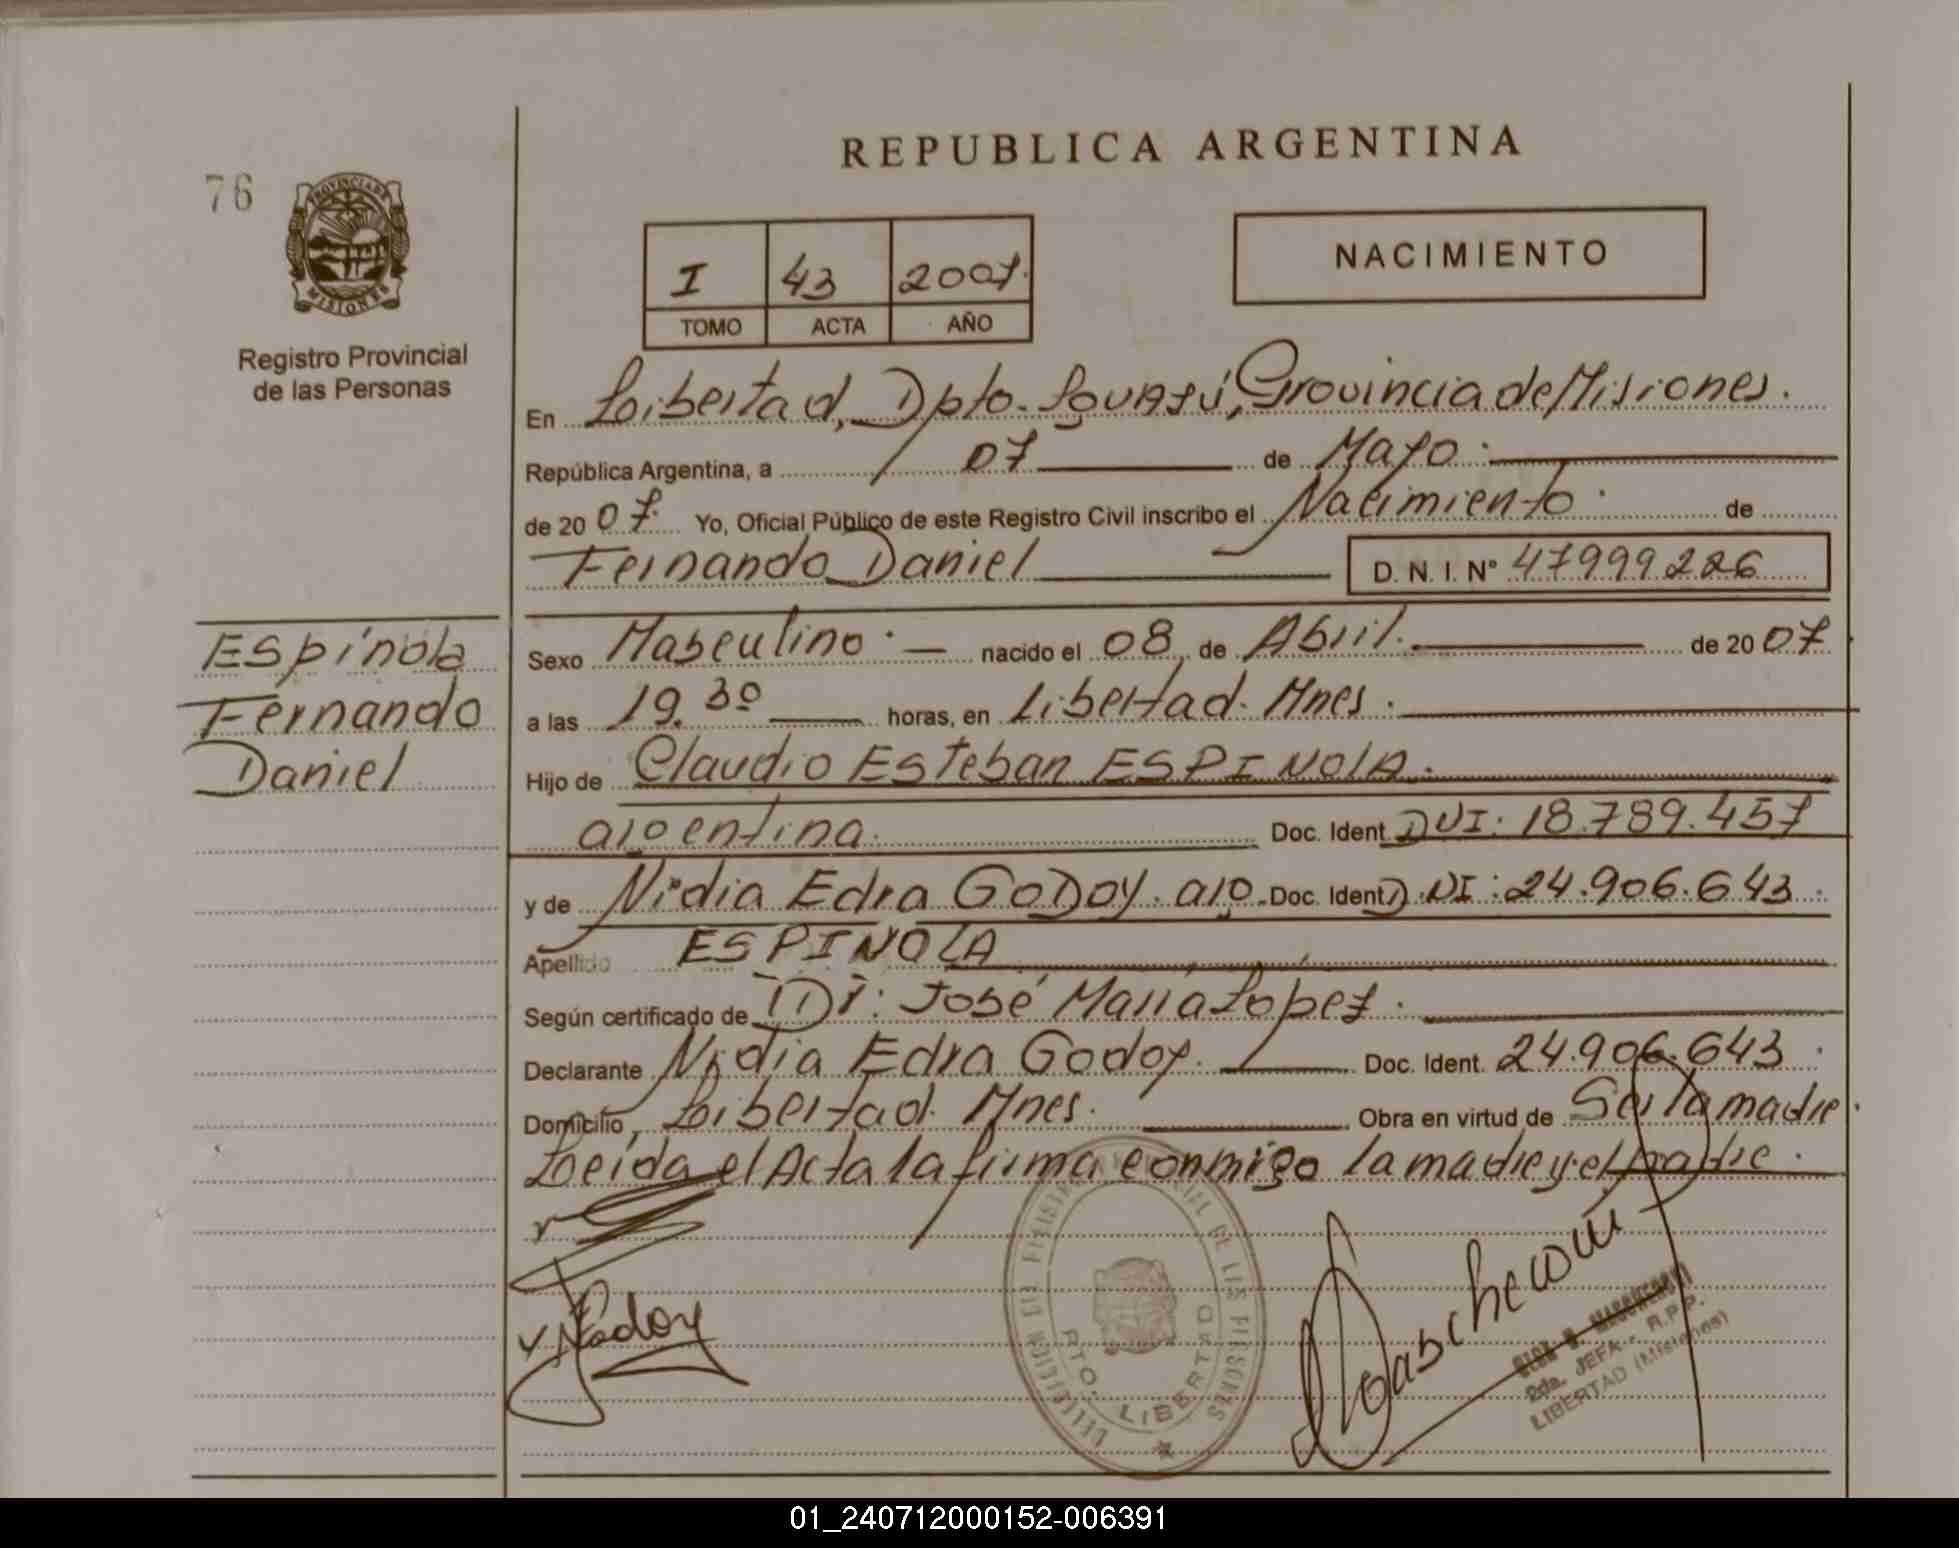 REPUBLICA ARGENTINA
76
PROVINCIA DE
MISIONES
Registro Provincial
de las Personas
I 43 2007.
TOMO ACTA AÑO
NACIMIENTO
En Libertad, Dpto. Iguazú, Provincia de Misiones.
República Argentina, a 07 de Mayo.
de 20 07. Yo, Oficial Público de este Registro Civil inscribo el Nacimiento. de
Fernando Daniel D. N. I. Nº 47999226
Espínola
Fernando
Daniel
Sexo Masculino. nacido el 08 de Abril. de 20 07
a las 19.30 horas, en Libertad. Mnes.
Hijo de Claudio Esteban ESPINOLA.
argentina. Doc. Ident. DNI: 18.789.457
y de Nidia Edra GODOY. arg. Doc. Ident. D.NI: 24.906.643.
Apellido ESPINOLA
Según certificado de Dr: José María Lopez.
Declarante Nidia Edra Godoy. Doc. Ident. 24.906.643.
Domicilio, Libertad. Mnes. Obra en virtud de Ser la madre.
Leída el Acta la firma conmigo la madre y el padre.
DE LAS PERSONAS
LIBERTAD
2da. JEFA - R.P.P.
LIBERTAD (Misiones)
01_240712000152-006391